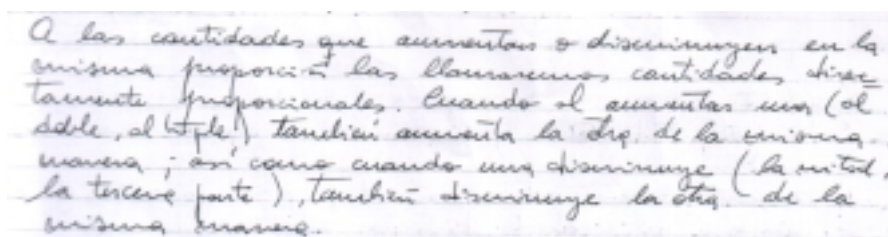 A las cantidades que aumentan o disminuyen en la
misma proporción las llamaremos cantidades direc
tamente proporcionales. Cuando al aumentar una (al
doble, al triple) también aumenta la otra de la misma
manera; así como cuando una disminuye (la mitad,
la tercera parte), también disminuye la otra de la
misma manera.